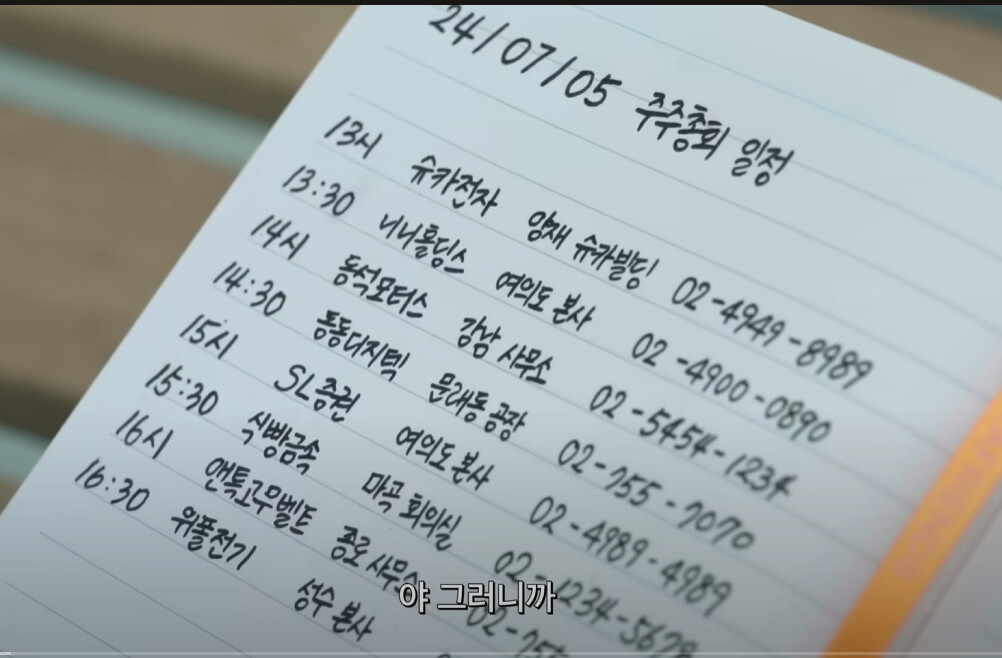 24/07/05 주주총회 일정
13시 슈카전자 양재 슈카빌딩 02-4949-8989
13:30 니니홀딩스 여의도 본사 02-4900-0890
14시 동석모터스 강남 사무소 02-5454-1234
14:30 동동디지텍 문래동 공장 02-755-7070
15시 SL증권 여의도 본사 02-4989-4989
15:30 식빵금속 마곡 회의실 02-1234-5678
16시 앤톡고무벨트 종로 사무소
16:30 위플전기 성수 본사
야 그러니까